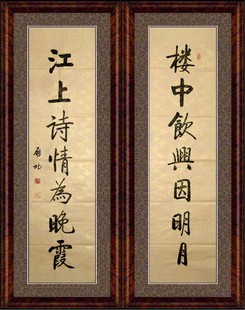 楼中飲興因明月
江上詩情為晚霞
啟功